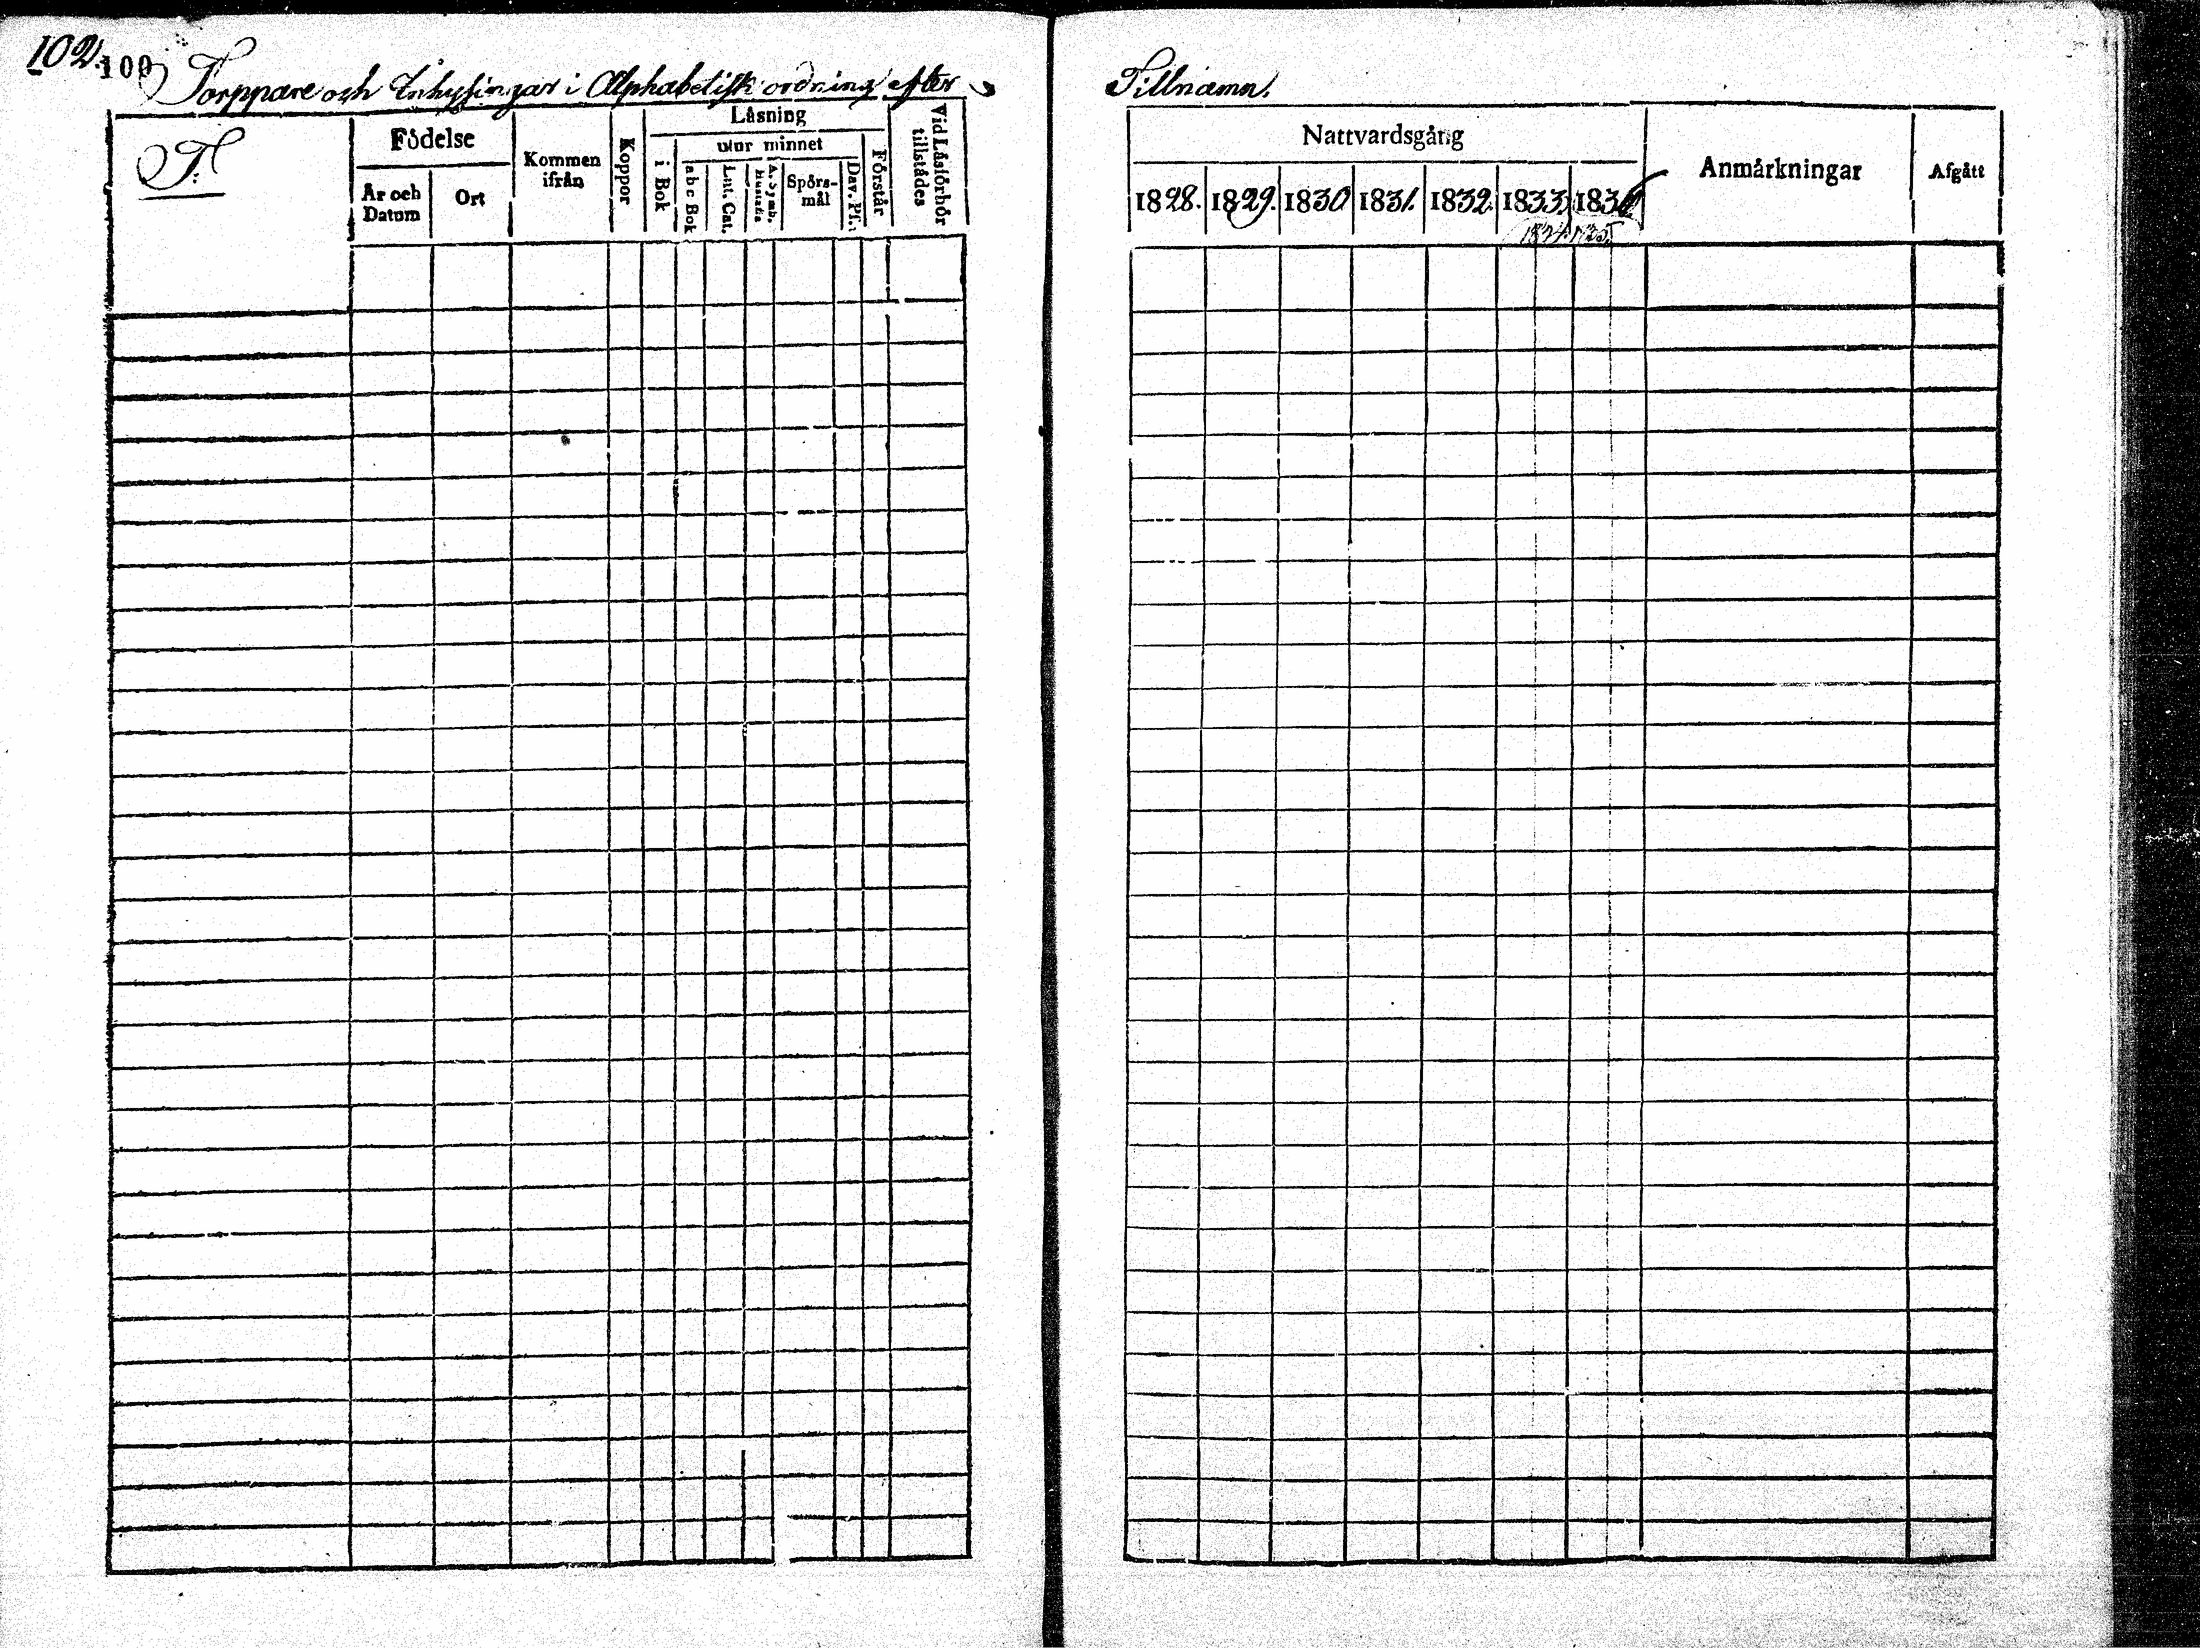 102. 100
Torppare och Inhysingar i Alphabetisk ordning efter
Tillnamn.
T.
Födelse
År och Datum
Ort
Kommen ifrån
Koppor
Läsning
i Bok
utur minnet
a b c Bok
Lut. Cat.
A. Symb.
Spörs-
mål
Dav. Ps.
Förstår
Vid Läsförhör
tillstädes
Nattvardsgång
1828. 1829. 1830 1831. 1832. 1833. 1836
1834. 1835.
Anmärkningar
Afgått